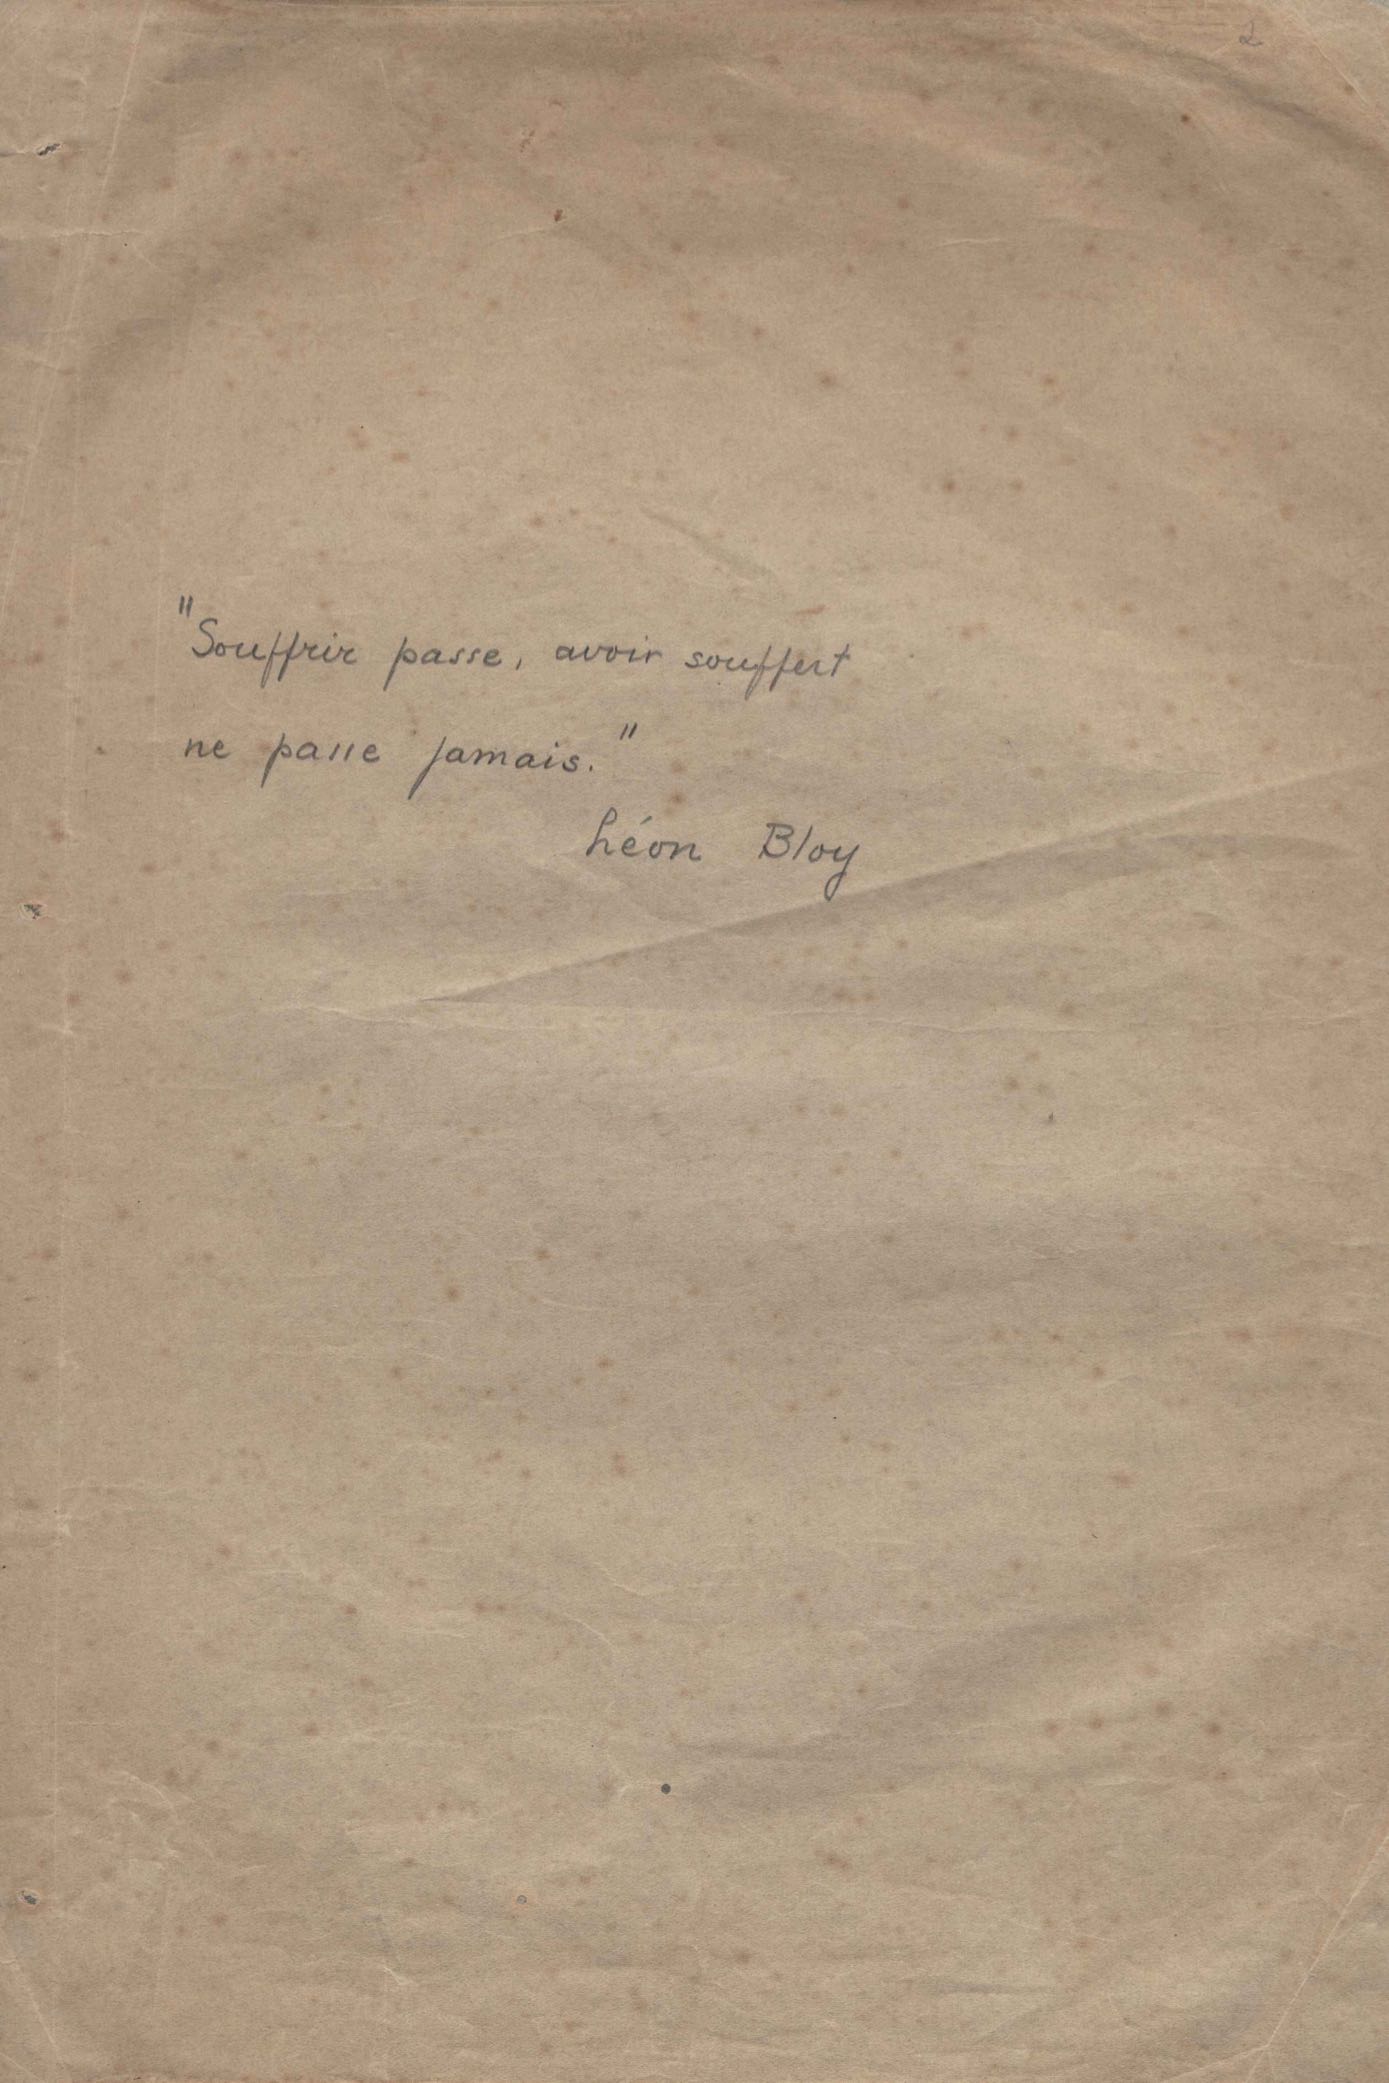 2
"Souffrir passe, avoir souffert
ne passe jamais."
Léon Bloy